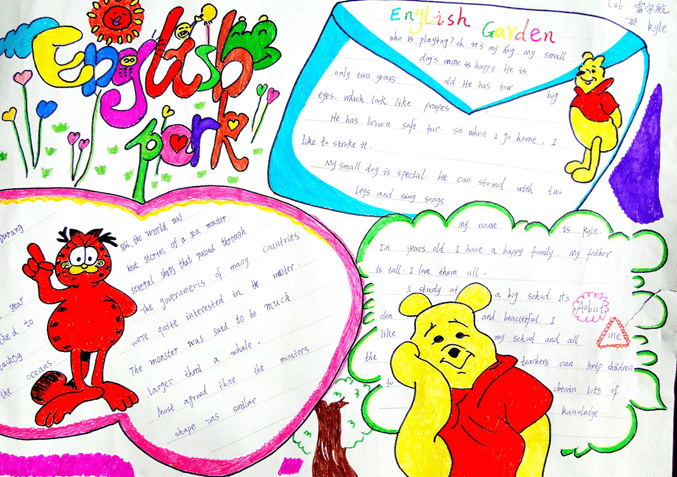 English
park
English Garden
雷
kyle
who is playing? oh it's my dog. My small
dog's name is happy. He is
only two years old He has tow big
eyes. which look like
He has brown soft fur. so when I go home, I
like to stroke it.
My small dog is special. He can stand with two
legs and sing songs
the world was
stories of a sea monster
several ships that passed through
The governments of many countries
were quite interested in the matter.
The monster was said to be much
larger than a whale.
Most agreed that the monsters
shape was similar
year
to
the oceans.
my name is kyle.
In years old. I have a happy family. My father
is tall. I love them all.
I study at a big school. Its
den and beautiful. I
like my school and all
the teachers can help children
to obtain lots of
knowledge.
Aobut
me